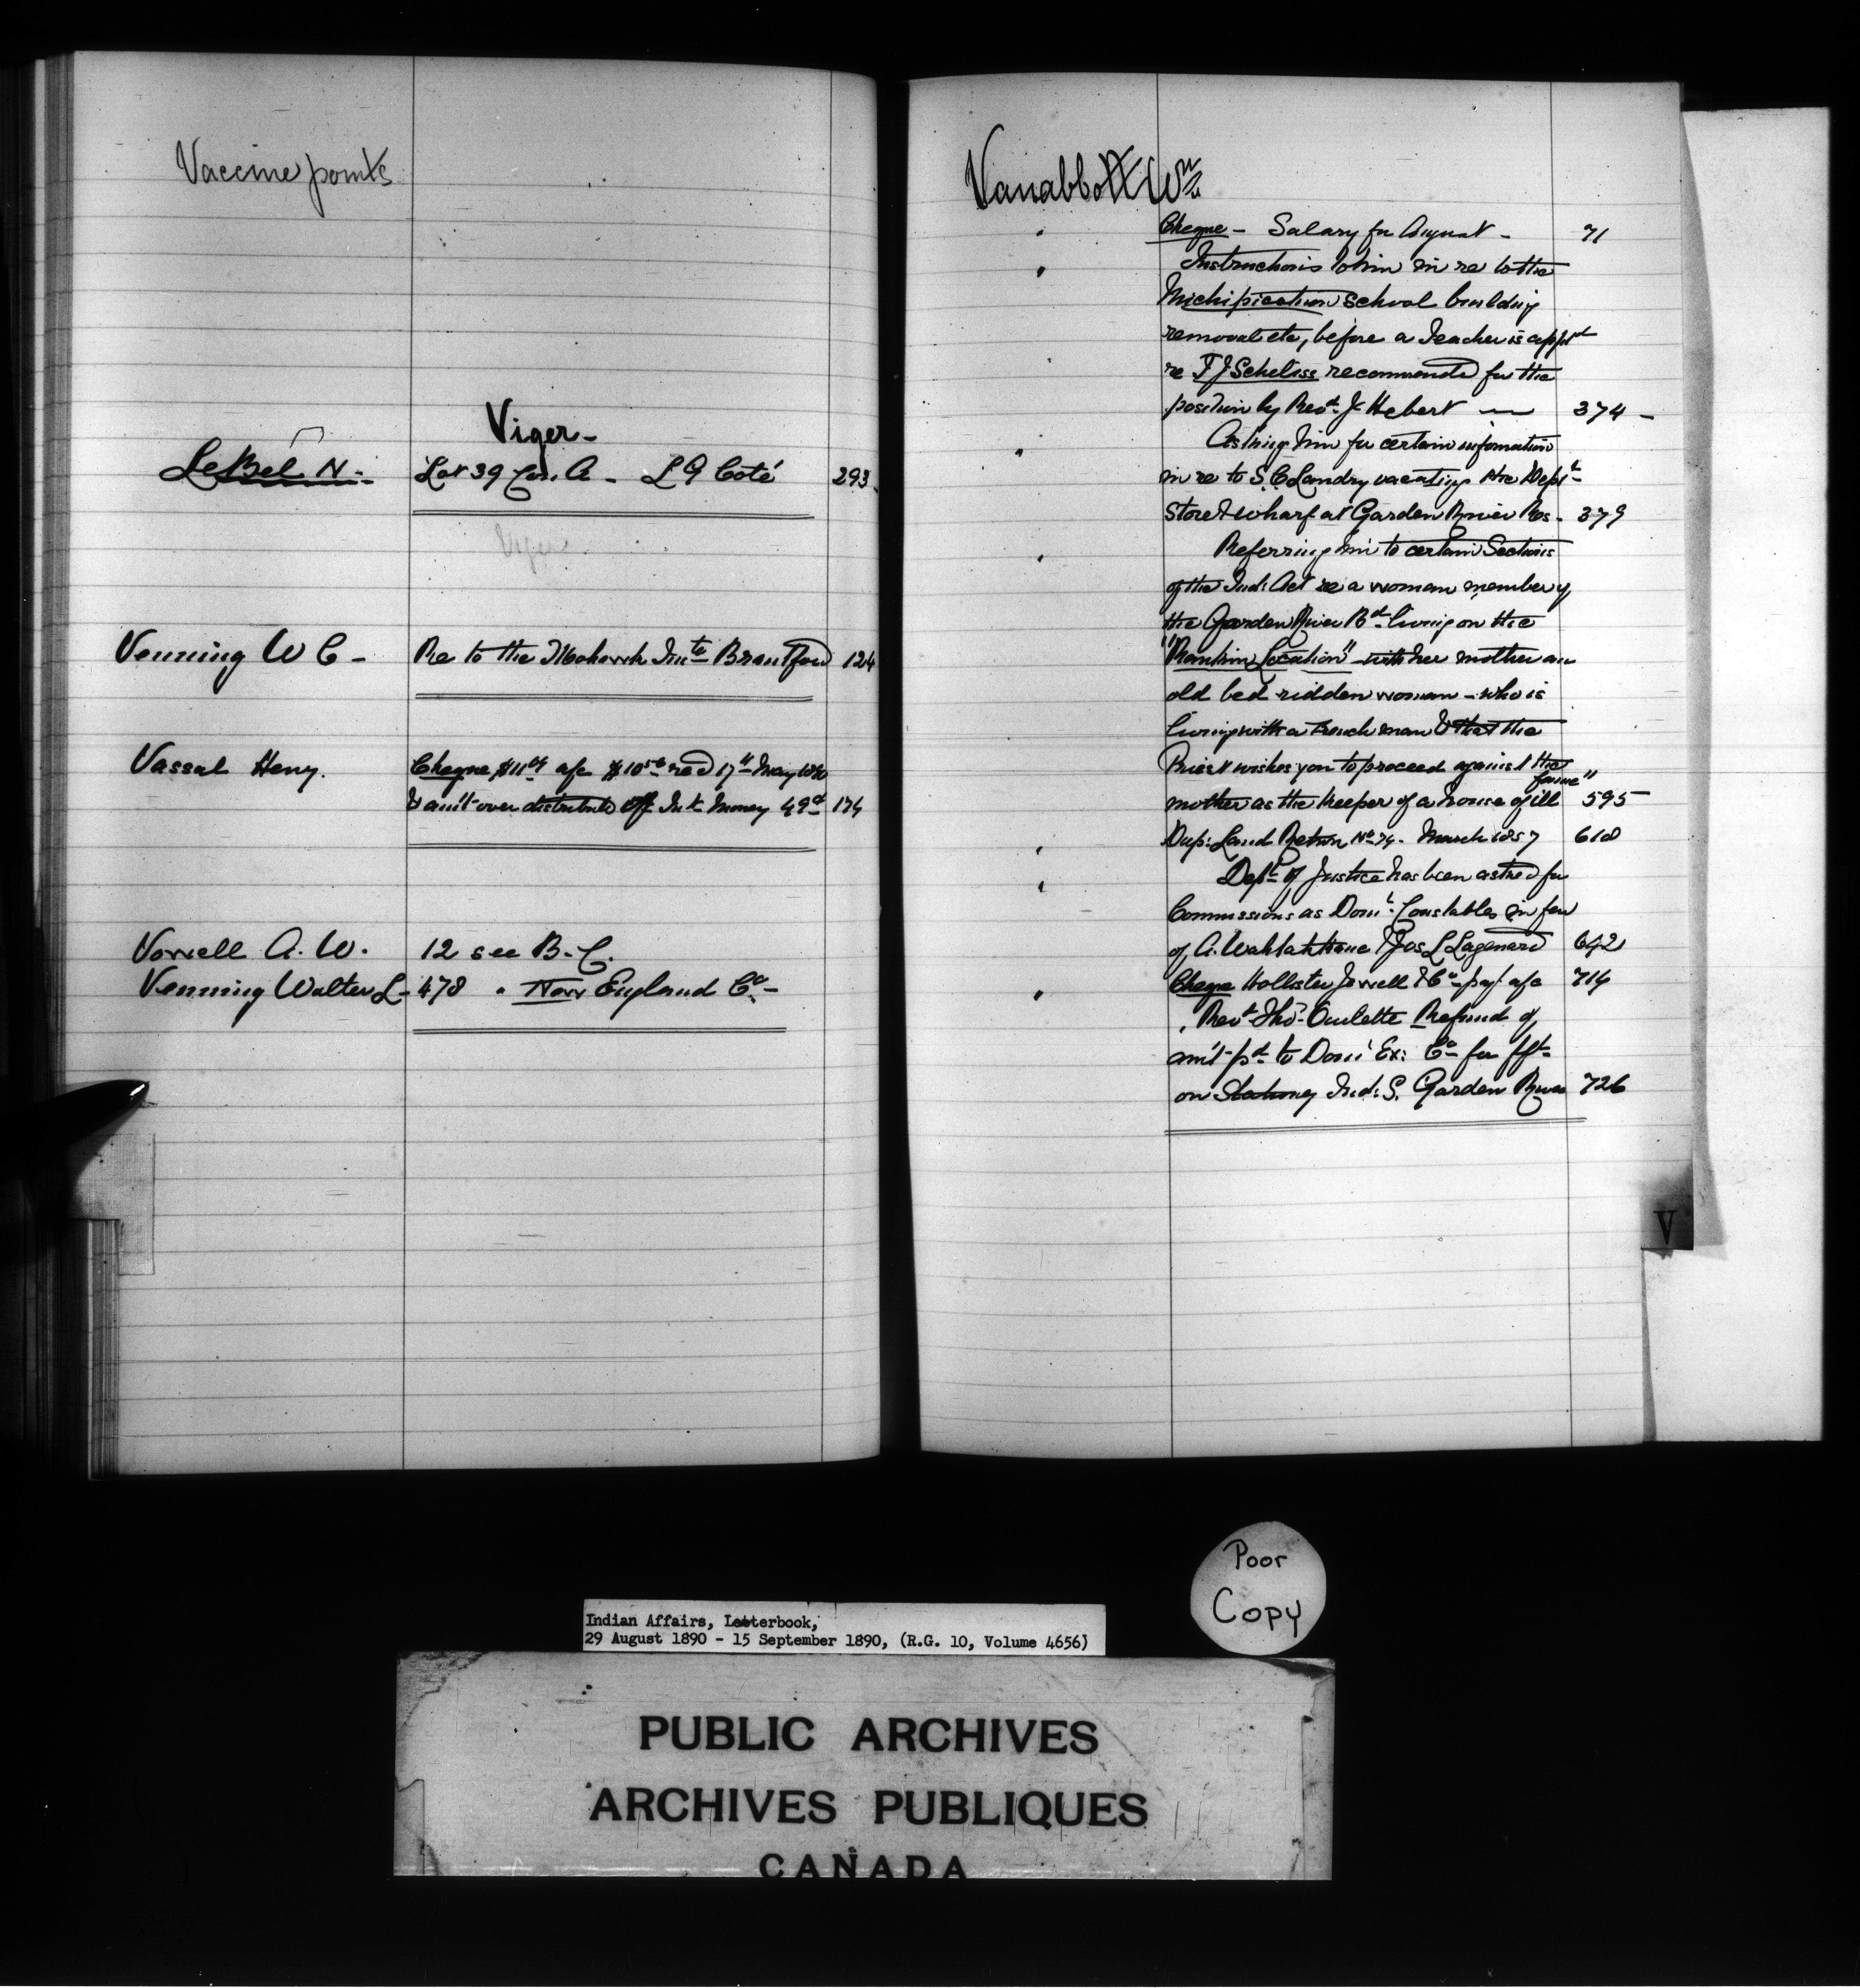 Vaccine points
Viger -
LeBel N. - Lot 39 Con. A - L G Coté 293
Viger
Venning W C - Re to the Mohawk Inste Brantford 124
Vassal Heny. Cheque $11 04 a/c $10 56 recd 17th May 1890
& amt over distributd Int Money 49d 174
Vowell A. W. 12 see B. C.
Venning Walter L - 478 " New England Co -
Vanabbott Wm
Cheque - Salary for August - 71
Instructions to him in re to the
Michipicotun School building
removal etc, before a Teacher is apptd
re F J Scheliss recommended for the
position by Revd J. Hebert — 374 -
Asking him for certain information
in re to S. C Landry vacating the Dept
Store & wharf at Garden River Res. 379
Referring him to certain Sections
of the Ind: Act re a woman member of
the Garden River Bd living on the
"Rankin Location" with her mother an
old bed ridden woman - who is
living with a French man & that the
Priest wishes you to proceed against the
mother as the keeper of a house of ill fame" 595
Dup: Land Return No 74. March 1857 618
Dept of Justice has been asked for
Commissions as Domn Constables in fav
of A. & Jos L Lagenard 642
Cheque Hollister Jewell & Co pay a/c 714
" Revd Thos. Oulette Refund of
amt pd to Domn Ex: Co for frt
on Ind: S. Garden River 726
V
Poor
Copy
Indian Affairs, Letterbook,
29 August 1890 - 15 September 1890, (R.G. 10, Volume 4656)
PUBLIC ARCHIVES
ARCHIVES PUBLIQUES
CANADA